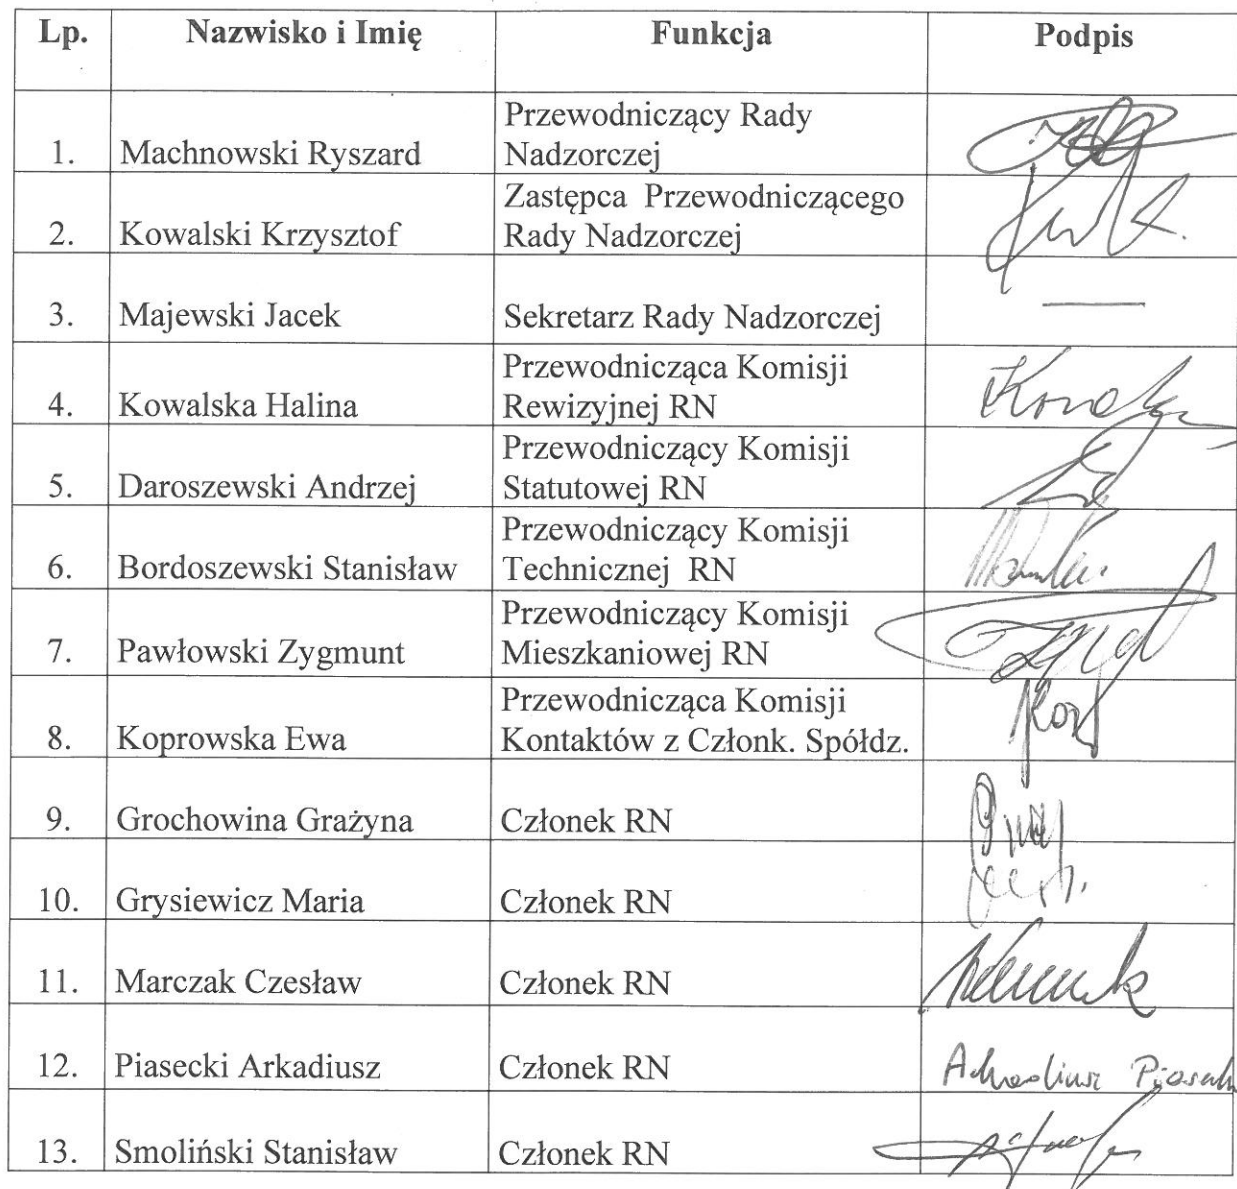 Lp. Nazwisko i Imię Funkcja Podpis
1. Machnowski Ryszard Przewodniczący Rady
Nadzorczej
2. Kowalski Krzysztof Zastępca Przewodniczącego
Rady Nadzorczej
3. Majewski Jacek Sekretarz Rady Nadzorczej
4. Kowalska Halina Przewodnicząca Komisji
Rewizyjnej RN
5. Daroszewski Andrzej Przewodniczący Komisji
Statutowej RN
6. Bordoszewski Stanisław Przewodniczący Komisji
Technicznej RN
7. Pawłowski Zygmunt Przewodniczący Komisji
Mieszkaniowej RN
8. Koprowska Ewa Przewodnicząca Komisji
Kontaktów z Członk. Spółdz.
9. Grochowina Grażyna Członek RN
10. Grysiewicz Maria Członek RN
11. Marczak Czesław Członek RN
12. Piasecki Arkadiusz Członek RN
13. Smoliński Stanisław Członek RN